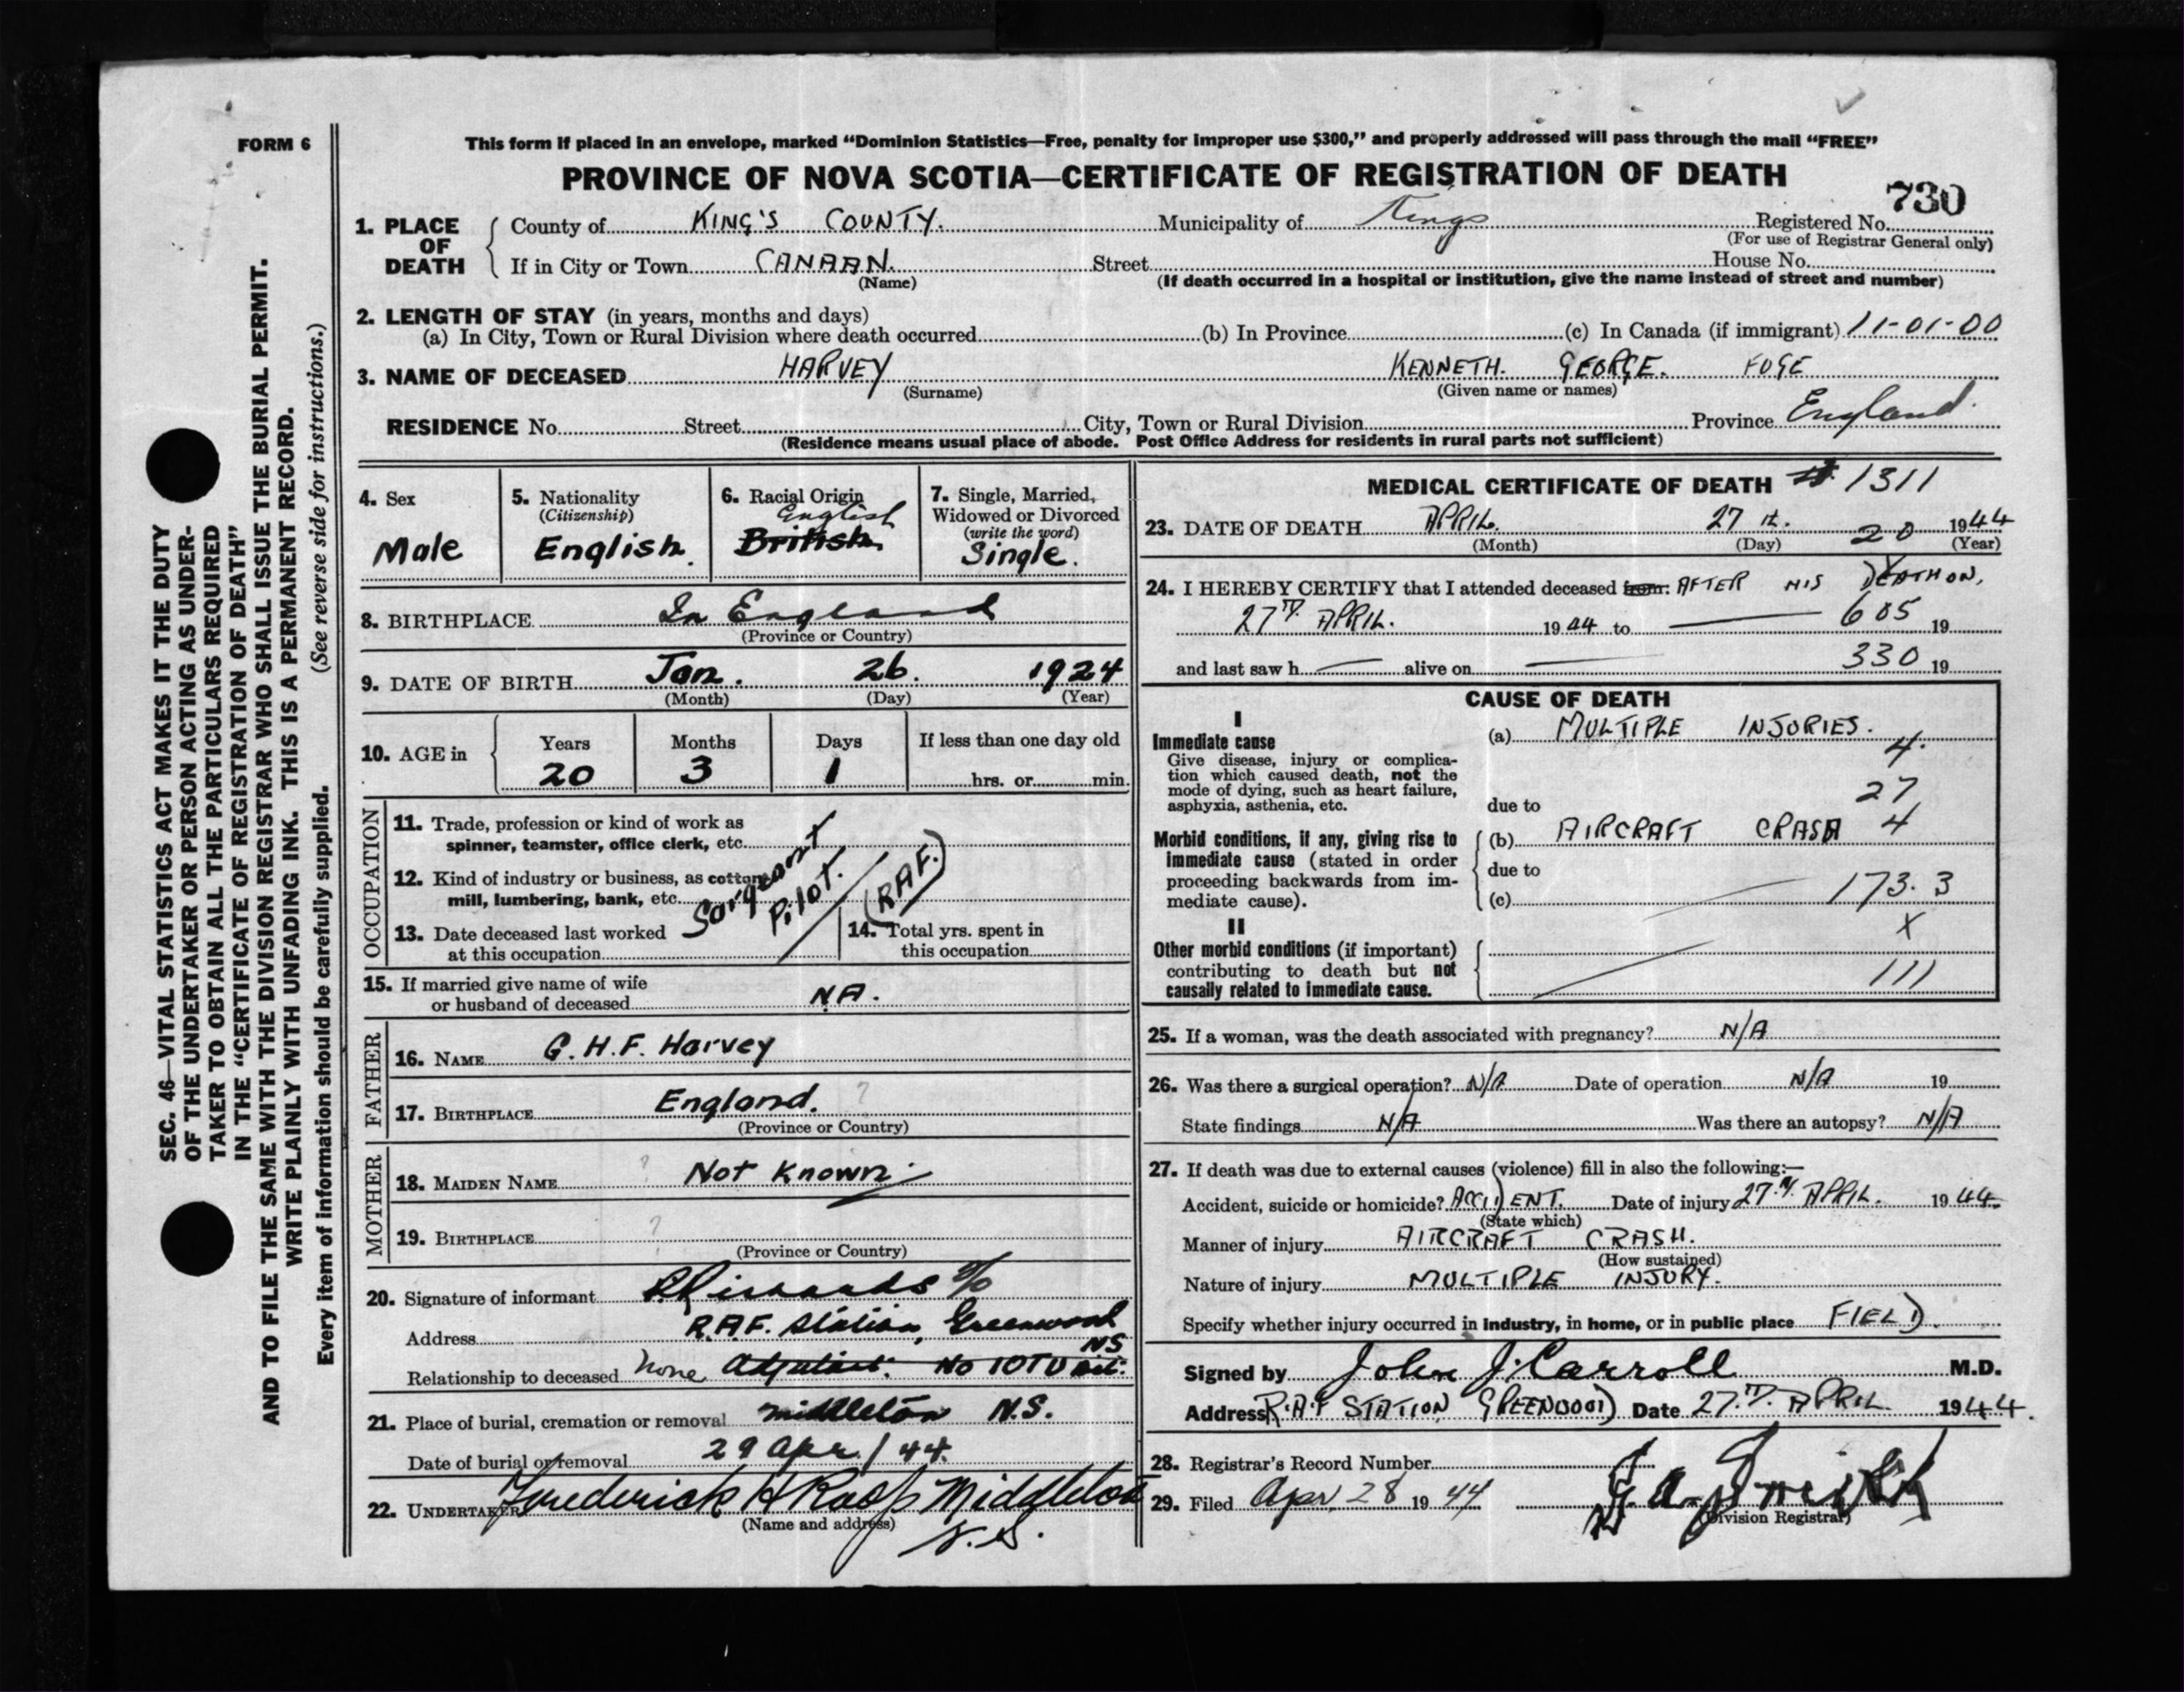 FORM 6
This form if placed in an envelope, marked “Dominion Statistics—Free, penalty for improper use $300,” and properly addressed will pass through the mail “FREE”
PROVINCE OF NOVA SCOTIA—CERTIFICATE OF REGISTRATION OF DEATH
730
1. PLACE OF DEATH
County of KING'S COUNTY. Municipality of Kings Registered No.
(For use of Registrar General only)
If in City or Town CANAAN. Street House No.
(Name) (If death occurred in a hospital or institution, give the name instead of street and number)
2. LENGTH OF STAY (in years, months and days)
(a) In City, Town or Rural Division where death occurred (b) In Province (c) In Canada (if immigrant) 11-01-00
3. NAME OF DECEASED HARVEY KENNETH. GEORGE. FOGE
(Surname) (Given name or names)
RESIDENCE No. Street City, Town or Rural Division Province England.
(Residence means usual place of abode. Post Office Address for residents in rural parts not sufficient)
4. Sex
Male
5. Nationality
(Citizenship)
English.
6. Racial Origin
English
British
7. Single, Married,
Widowed or Divorced
(write the word)
Single.
8. BIRTHPLACE In England
(Province or Country)
9. DATE OF BIRTH Jan. 26. 1924
(Month) (Day) (Year)
10. AGE in Years Months Days If less than one day old
20 3 1 hrs. or min.
OCCUPATION
11. Trade, profession or kind of work as
spinner, teamster, office clerk, etc.
12. Kind of industry or business, as cotton
mill, lumbering, bank, etc.
Sargeant
Pilot.
(RAF.)
13. Date deceased last worked
at this occupation
14. Total yrs. spent in
this occupation
15. If married give name of wife
or husband of deceased NA.
FATHER
16. NAME G. H. F. Harvey
17. BIRTHPLACE England. ?
(Province or Country)
MOTHER
18. MAIDEN NAME ? Not Known
19. BIRTHPLACE ?
(Province or Country)
20. Signature of informant
Address R.A.F. Station, Greenwood
NS
Relationship to deceased none Adjutant. No 10TUnit.
21. Place of burial, cremation or removal Middleton N.S.
Date of burial or removal 29 Apr / 44.
22. UNDERTAKER Frederick H Roop Middleton
(Name and address)
N.S.
MEDICAL CERTIFICATE OF DEATH 1311
23. DATE OF DEATH APRIL. 27 th. 20 1944
(Month) (Day) (Year)
24. I HEREBY CERTIFY that I attended deceased from: AFTER HIS DEATH ON,
27TH APRIL. 1944 to 605 19
and last saw h alive on 330 19
CAUSE OF DEATH
I
Immediate cause
Give disease, injury or complica-
tion which caused death, not the
mode of dying, such as heart failure,
asphyxia, asthenia, etc.
(a) MULTIPLE INJURIES.
4.
27
due to
Morbid conditions, if any, giving rise to
immediate cause (stated in order
proceeding backwards from im-
mediate cause).
(b) AIRCRAFT CRASH 4
due to
(c) 173.3
X
II
Other morbid conditions (if important)
contributing to death but not
causally related to immediate cause.
111
25. If a woman, was the death associated with pregnancy? N/A
26. Was there a surgical operation? N/A Date of operation N/A 19
State findings N/A Was there an autopsy? N/A
27. If death was due to external causes (violence) fill in also the following:—
Accident, suicide or homicide? ACCIDENT. Date of injury 27.TH APRIL. 1944
(State which)
Manner of injury AIRCRAFT CRASH.
(How sustained)
Nature of injury MULTIPLE INJURY.
Specify whether injury occurred in industry, in home, or in public place FIELD.
Signed by John J. Carroll M.D.
Address R.A.F STATION GREENWOOD Date 27.TH APRIL 1944.
28. Registrar's Record Number
29. Filed Apr. 28 1944
Division Registrar)
SEC. 46—VITAL STATISTICS ACT MAKES IT THE DUTY
OF THE UNDERTAKER OR PERSON ACTING AS UNDER-
TAKER TO OBTAIN ALL THE PARTICULARS REQUIRED
IN THE “CERTIFICATE OF REGISTRATION OF DEATH”
AND TO FILE THE SAME WITH THE DIVISION REGISTRAR WHO SHALL ISSUE THE BURIAL PERMIT.
WRITE PLAINLY WITH UNFADING INK. THIS IS A PERMANENT RECORD.
Every item of information should be carefully supplied. (See reverse side for instructions.)